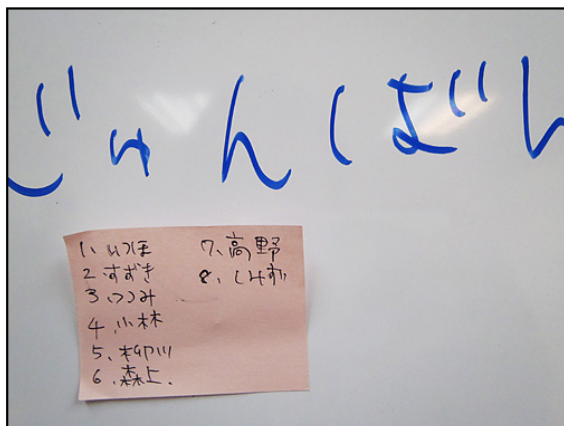 じゅんばん
1、いつほ
2、すずき
3、つつみ
4、小林
5、柳川
6、森上.
7、高野
8、しみず